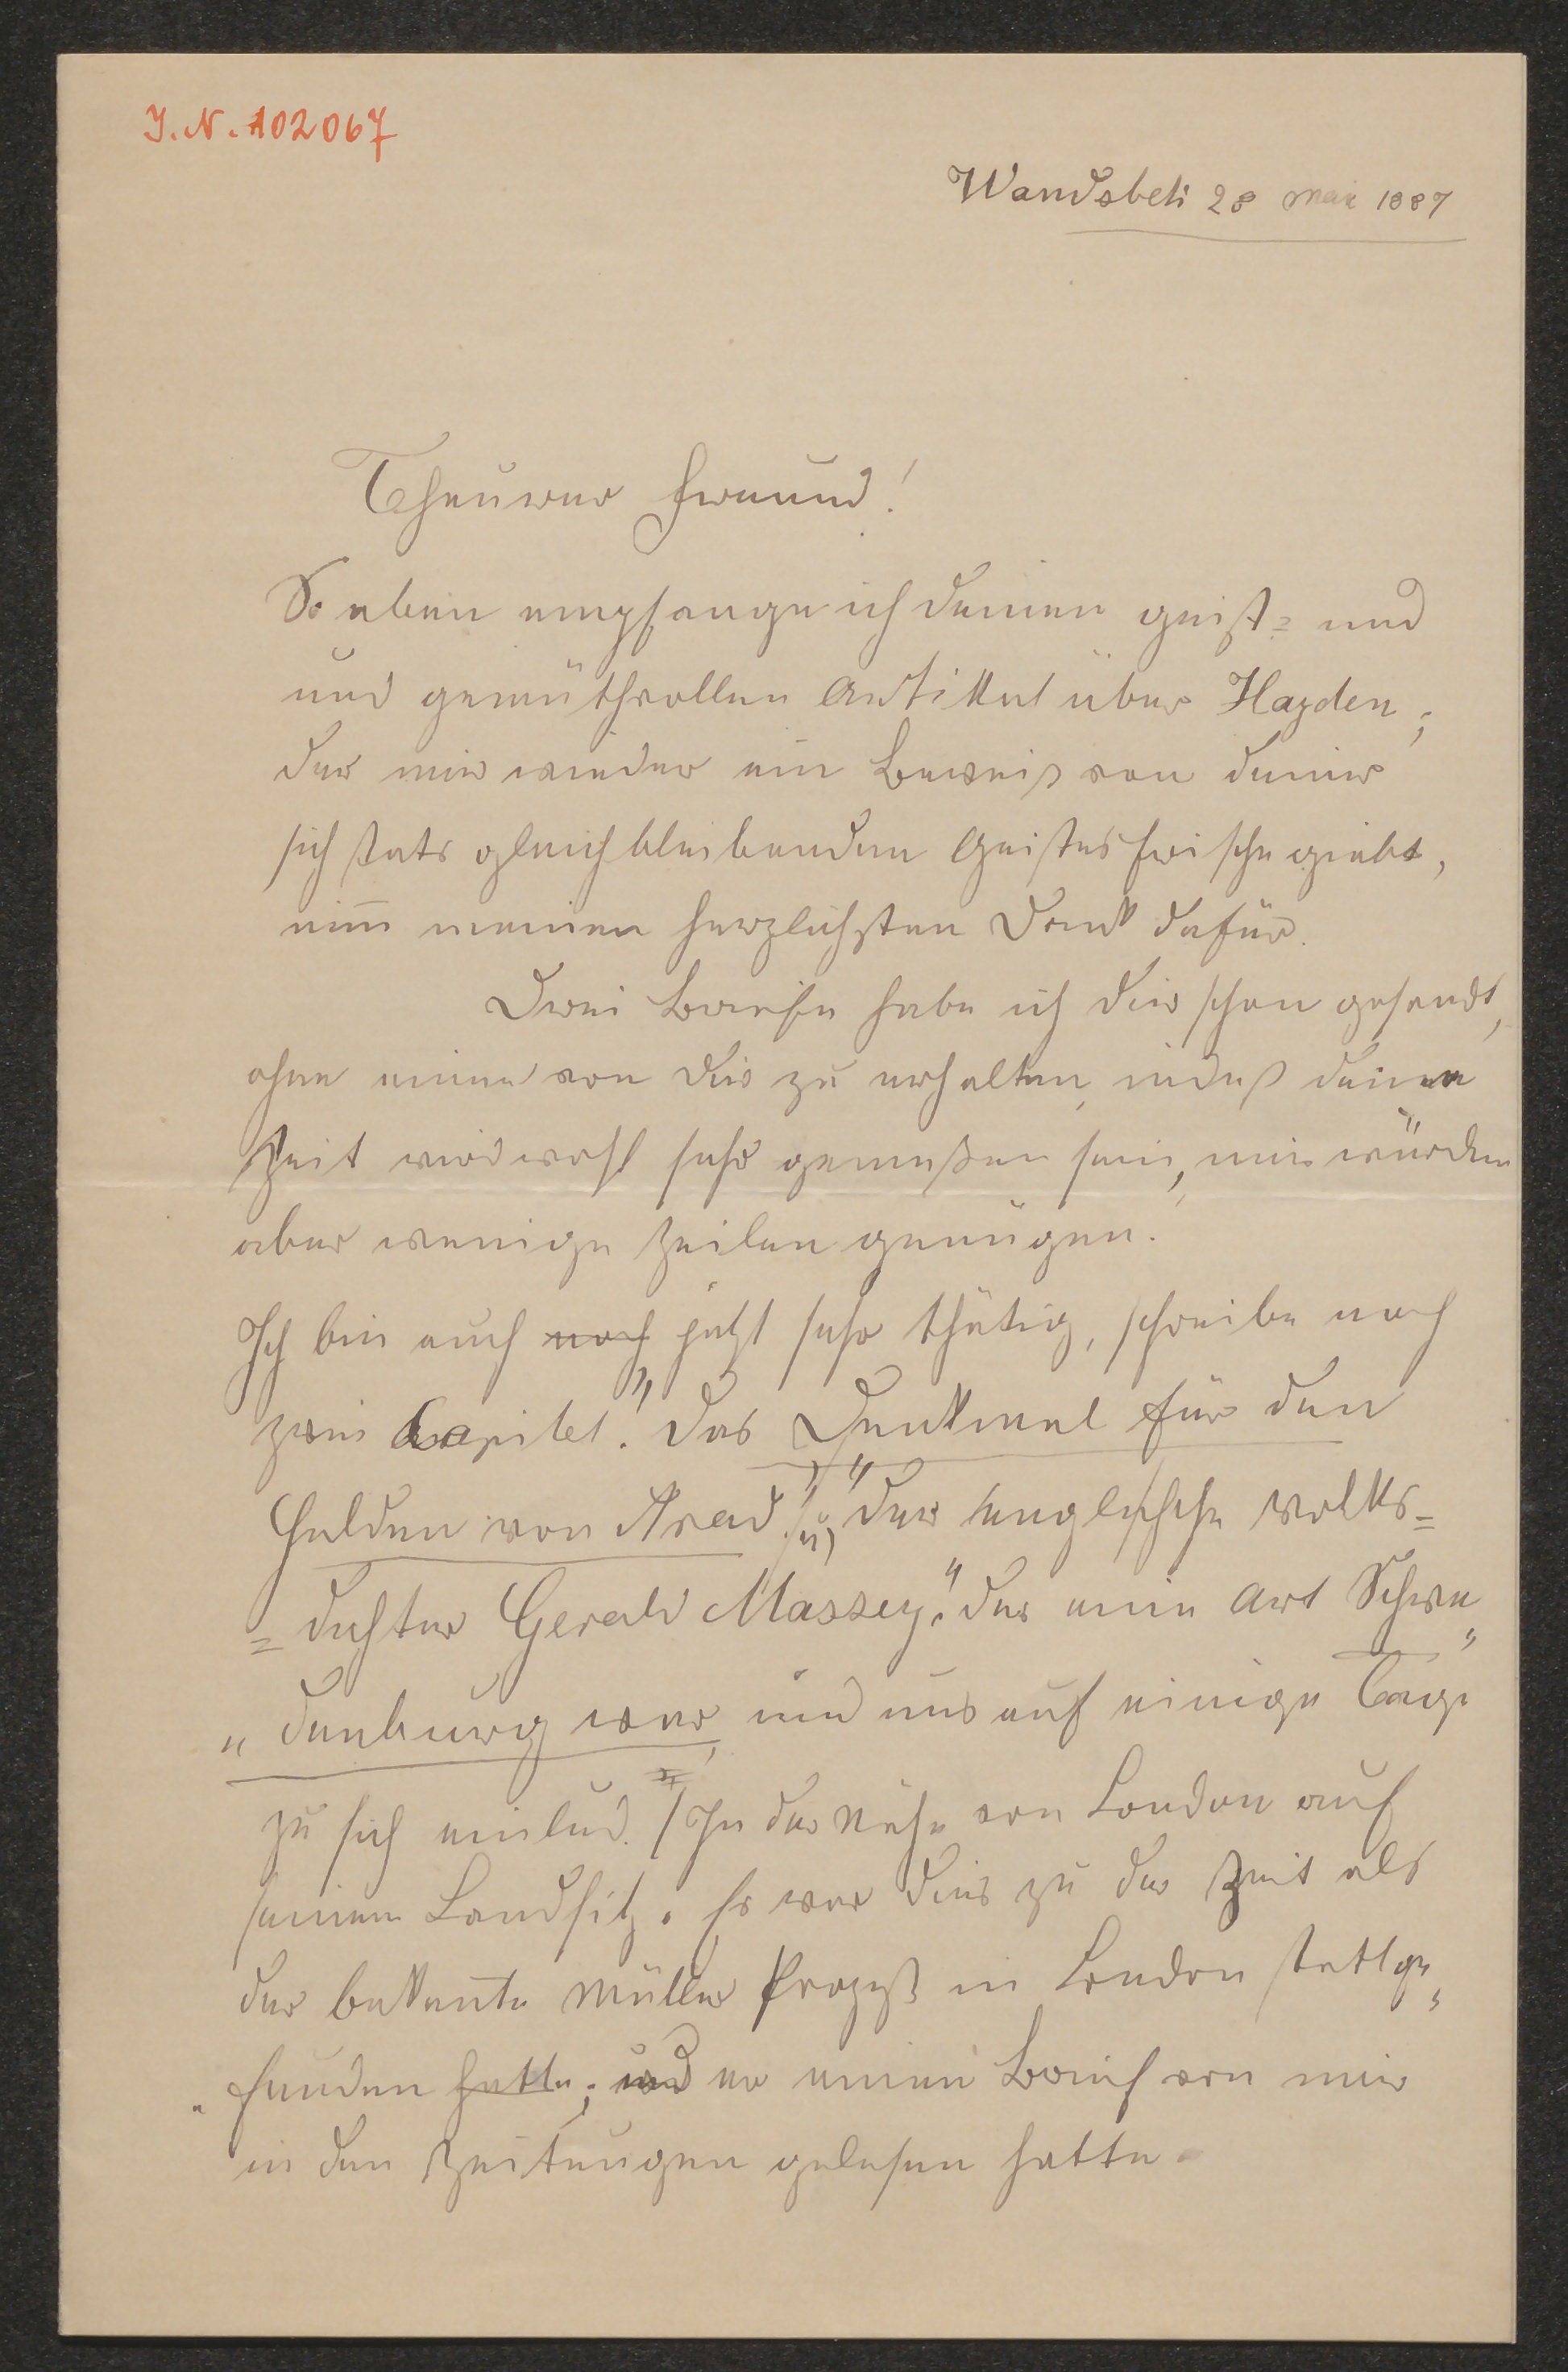 I. N. 102067
Wandsbek 28 Mai 1887
Theurer Freund!
So eben empfange ich deinen geist= und
und gemüthvollen Artikel über Hayden;
der mir wieder ein Beweis von deiner
sich stets gleichbleibenden Geistesfrische giebt,
nim̄ meinen herzlichsten Dank dafür.
Drei Briefe habe ich dir schon gesandt,
ohne einen von dir zu erhalten, indeß deine
Zeit wird wohl sehr gemeßen sein, mir würden
aber wenige Zeilen genügen.
Ich bin auch noch jetzt sehr thätig, schreibe noch
zwei Capitel. "Das Denkmal für den
Helden von Arad." u) "Der englische Volks=
=dichter Gerald Massey", der eine Art Schwe„
„denburg war, und uns auf einige Tage
zu sich einlud. / In der Nähe von London auf
seinem Landsitz. Es war dies zu der Zeit als
der bekan̄te Müller Prozeß in London stattge„
„funden hatte; und er einen Brief von mir
in den Zeitungen gelesen hatte.